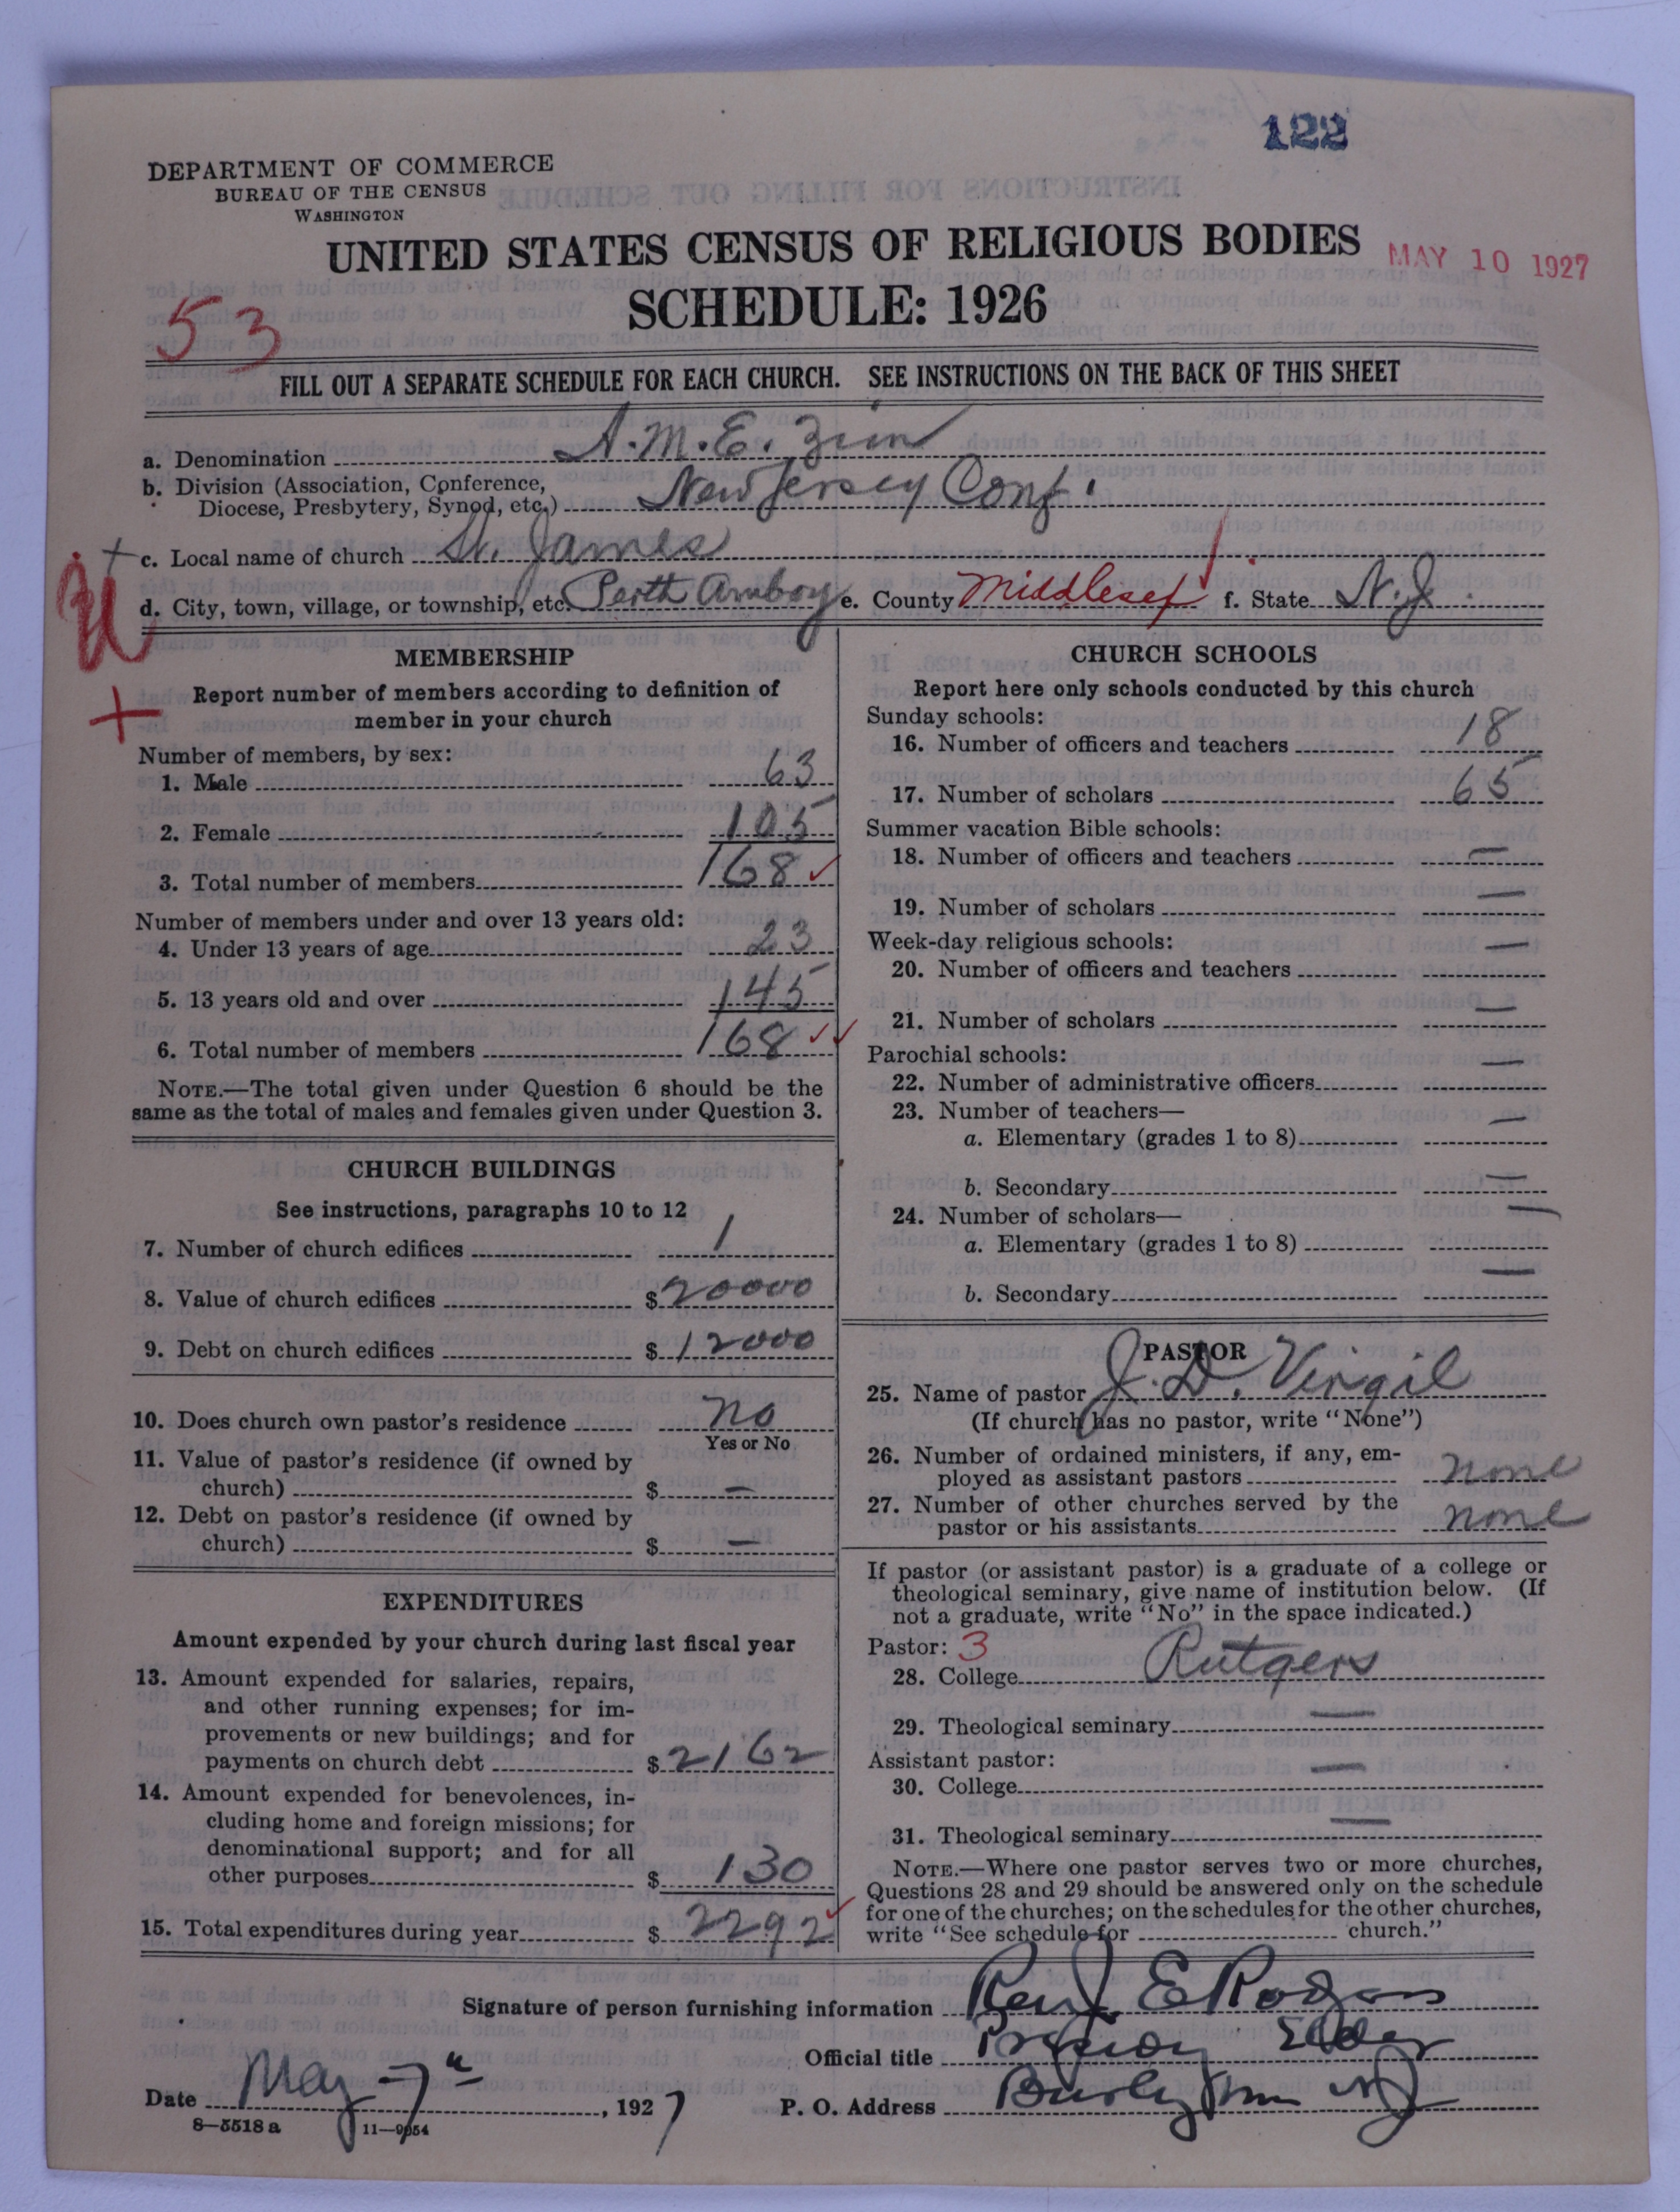 122
DEPARTMENT OF COMMERCE
BUREAU OF THE CENSUS
WASHINGTON
UNITED STATES CENSUS OF RELIGIOUS BODIES
MAY 10 1927
SCHEDULE: 1926
53
FILL OUT A SEPARATE SCHEDULE FOR EACH CHURCH. SEE INSTRUCTIONS ON THE BACK OF THIS SHEET
a. Denomination A.M.E. Zion
b. Division (Association, Conference,
Diocese, Presbytery, Synod, etc.) New Jersey Conf.
+ c. Local name of church St. James
d. City, town, village, or township, etc. Perth Amboy e. County Middlesex f. State N.J.
MEMBERSHIP
Report number of members according to definition of
member in your church
Number of members, by sex:
1. Male 63
2. Female 105
3. Total number of members 168 ✓
Number of members under and over 13 years old:
4. Under 13 years of age 23
5. 13 years old and over 145
6. Total number of members 168 ✓✓
NOTE.—The total given under Question 6 should be the
same as the total of males and females given under Question 3.
CHURCH BUILDINGS
See instructions, paragraphs 10 to 12
7. Number of church edifices 1
8. Value of church edifices $20000
9. Debt on church edifices $12000
10. Does church own pastor's residence No
Yes or No
11. Value of pastor's residence (if owned by
church) $ —
12. Debt on pastor's residence (if owned by
church) $ —
EXPENDITURES
Amount expended by your church during last fiscal year
13. Amount expended for salaries, repairs,
and other running expenses; for im-
provements or new buildings; and for
payments on church debt $2162
14. Amount expended for benevolences, in-
cluding home and foreign missions; for
denominational support; and for all
other purposes $130
15. Total expenditures during year $2292 ✓
CHURCH SCHOOLS
Report here only schools conducted by this church
Sunday schools:
16. Number of officers and teachers 18
17. Number of scholars 65
Summer vacation Bible schools:
18. Number of officers and teachers —
19. Number of scholars —
Week-day religious schools:
20. Number of officers and teachers —
21. Number of scholars —
Parochial schools:
22. Number of administrative officers —
23. Number of teachers—
a. Elementary (grades 1 to 8) —
b. Secondary —
24. Number of scholars—
a. Elementary (grades 1 to 8) —
b. Secondary —
PASTOR
25. Name of pastor J. D. Virgil
(If church has no pastor, write "None")
26. Number of ordained ministers, if any, em-
ployed as assistant pastors none
27. Number of other churches served by the
pastor or his assistants none
If pastor (or assistant pastor) is a graduate of a college or
theological seminary, give name of institution below. (If
not a graduate, write "No" in the space indicated.)
Pastor: 3
28. College Rutgers
29. Theological seminary —
Assistant pastor:
30. College —
31. Theological seminary —
NOTE.—Where one pastor serves two or more churches,
Questions 28 and 29 should be answered only on the schedule
for one of the churches; on the schedules for the other churches,
write "See schedule for church."
Signature of person furnishing information Rev J. E Rogers
Official title Elder
Date May 7th, 1927 P. O. Address Burlington NJ
8—5518 a 11—9054